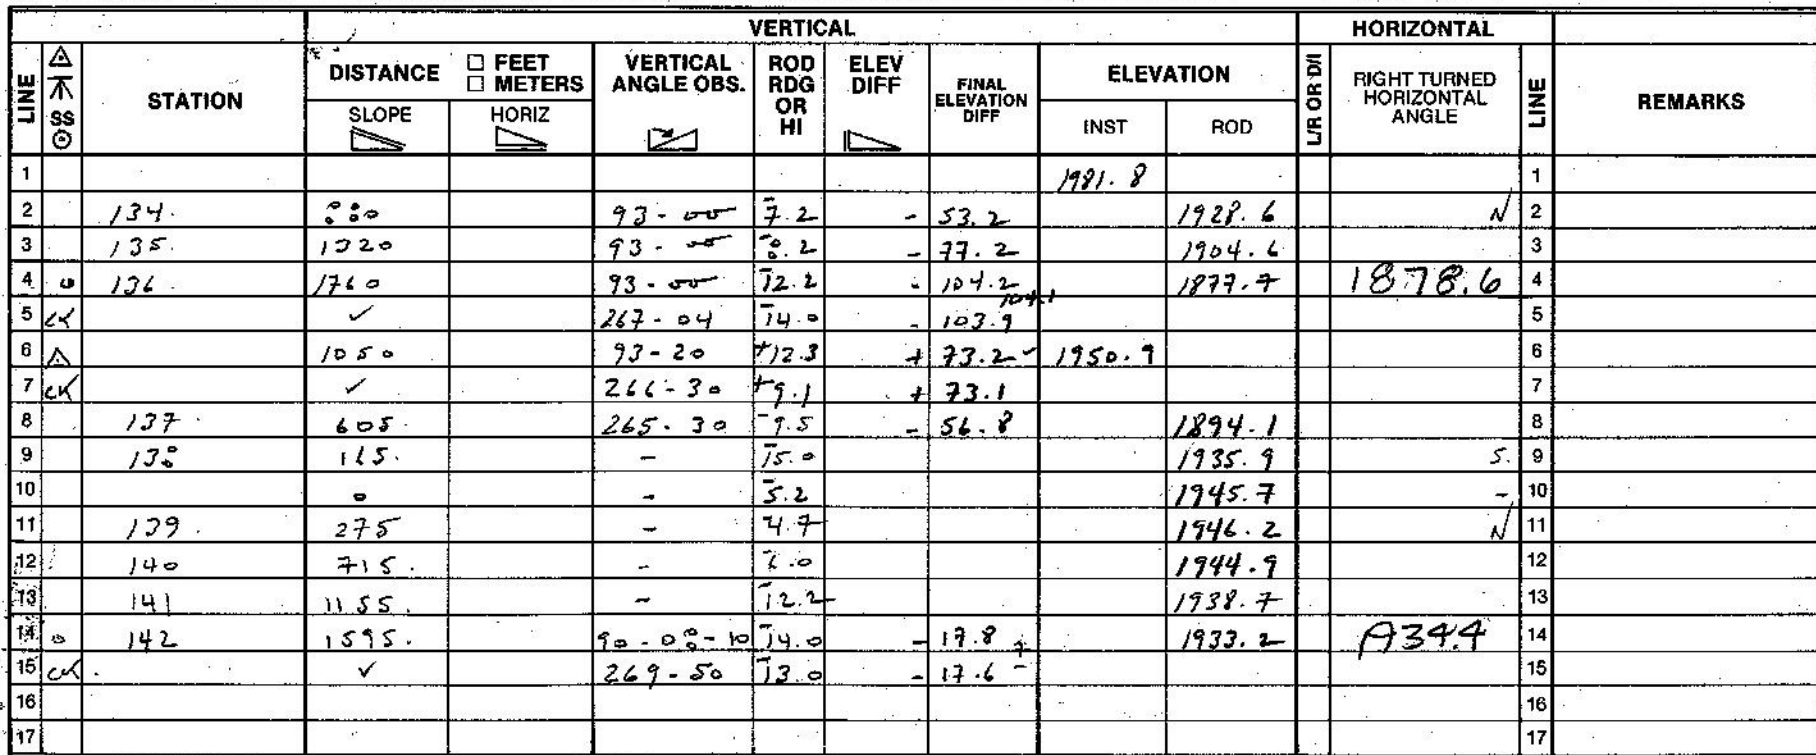 VERTICAL HORIZONTAL
LINE △ SS STATION DISTANCE □ FEET □ METERS VERTICAL ANGLE OBS. ROD RDG OR HI ELEV DIFF FINAL ELEVATION DIFF ELEVATION L/R OR D/I RIGHT TURNED HORIZONTAL ANGLE LINE REMARKS
SLOPE HORIZ INST ROD
1 1981.8 1
2 134. 880 93-00 -7.2 - 53.2 1928.6 N 2
3 135. 1320 93-00 -8.2 - 77.2 1904.6 3
4 o 136 1760 93-00 -12.2 - 104.2 1877.7 1878.6 4
104.1
5 CK ✓ 267-04 -14.0 - 103.9 5
6 △ 1050 93-20 +12.3 + 73.2 1950.9 6
7 CK ✓ 266-30 +9.1 + 73.1 7
8 137. 605. 265-30 -9.5 - 56.8 1894.1 8
9 138 165. - -15.0 1935.9 S. 9
10 0 - -5.2 1945.7 - 10
11 139. 275 - -4.7 1946.2 N 11
12 140 715. - -6.0 1944.9 12
13 141 1155. - -12.2 1938.7 13
14 o 142 1595. 90-08-10 -14.0 - 17.8 1933.2 14
15 CK. ✓ 269-50 -13.0 - 17.6 15
16 16
17 17